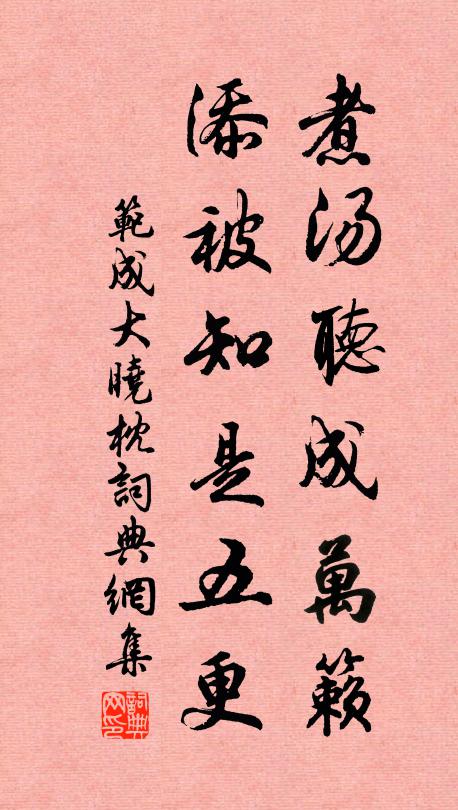 煮汤聽成萬籟
添被知是五更
範成大曉枕詞典網集
詞典
网印